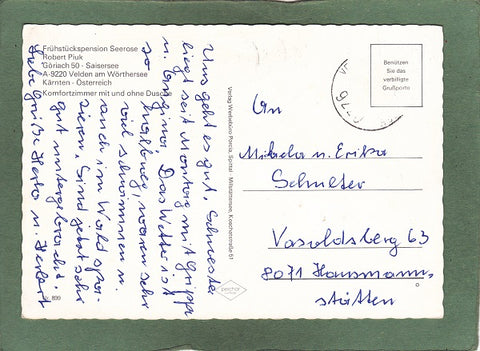 Frühstückspension Seerose
Robert Piuk
Göriach 50 - Saisersee
A-9220 Velden am Wörthersee
Kärnten - Österreich
Komfortzimmer mit und ohne Dusche
Uns geht es gut, Schwester
liegt seit Montag mit Grippe
u. Angina, Das Wetter ist
so halbweg, waren sehr
viel schwimmen u.
auch im Wald spa-
zieren, sind jetzt sehr
gut untergebracht.
Liebe Grüße Herta u. Herbert
Verlag Werbebüro Porcia, Spittal - Millstättersee,
perchar
Benützen
Sie das
verbilligte
Grußporto
An
Michaela u. Erika
Schulter
Vasoldsberg 63
8071 Hausmann,
stätten